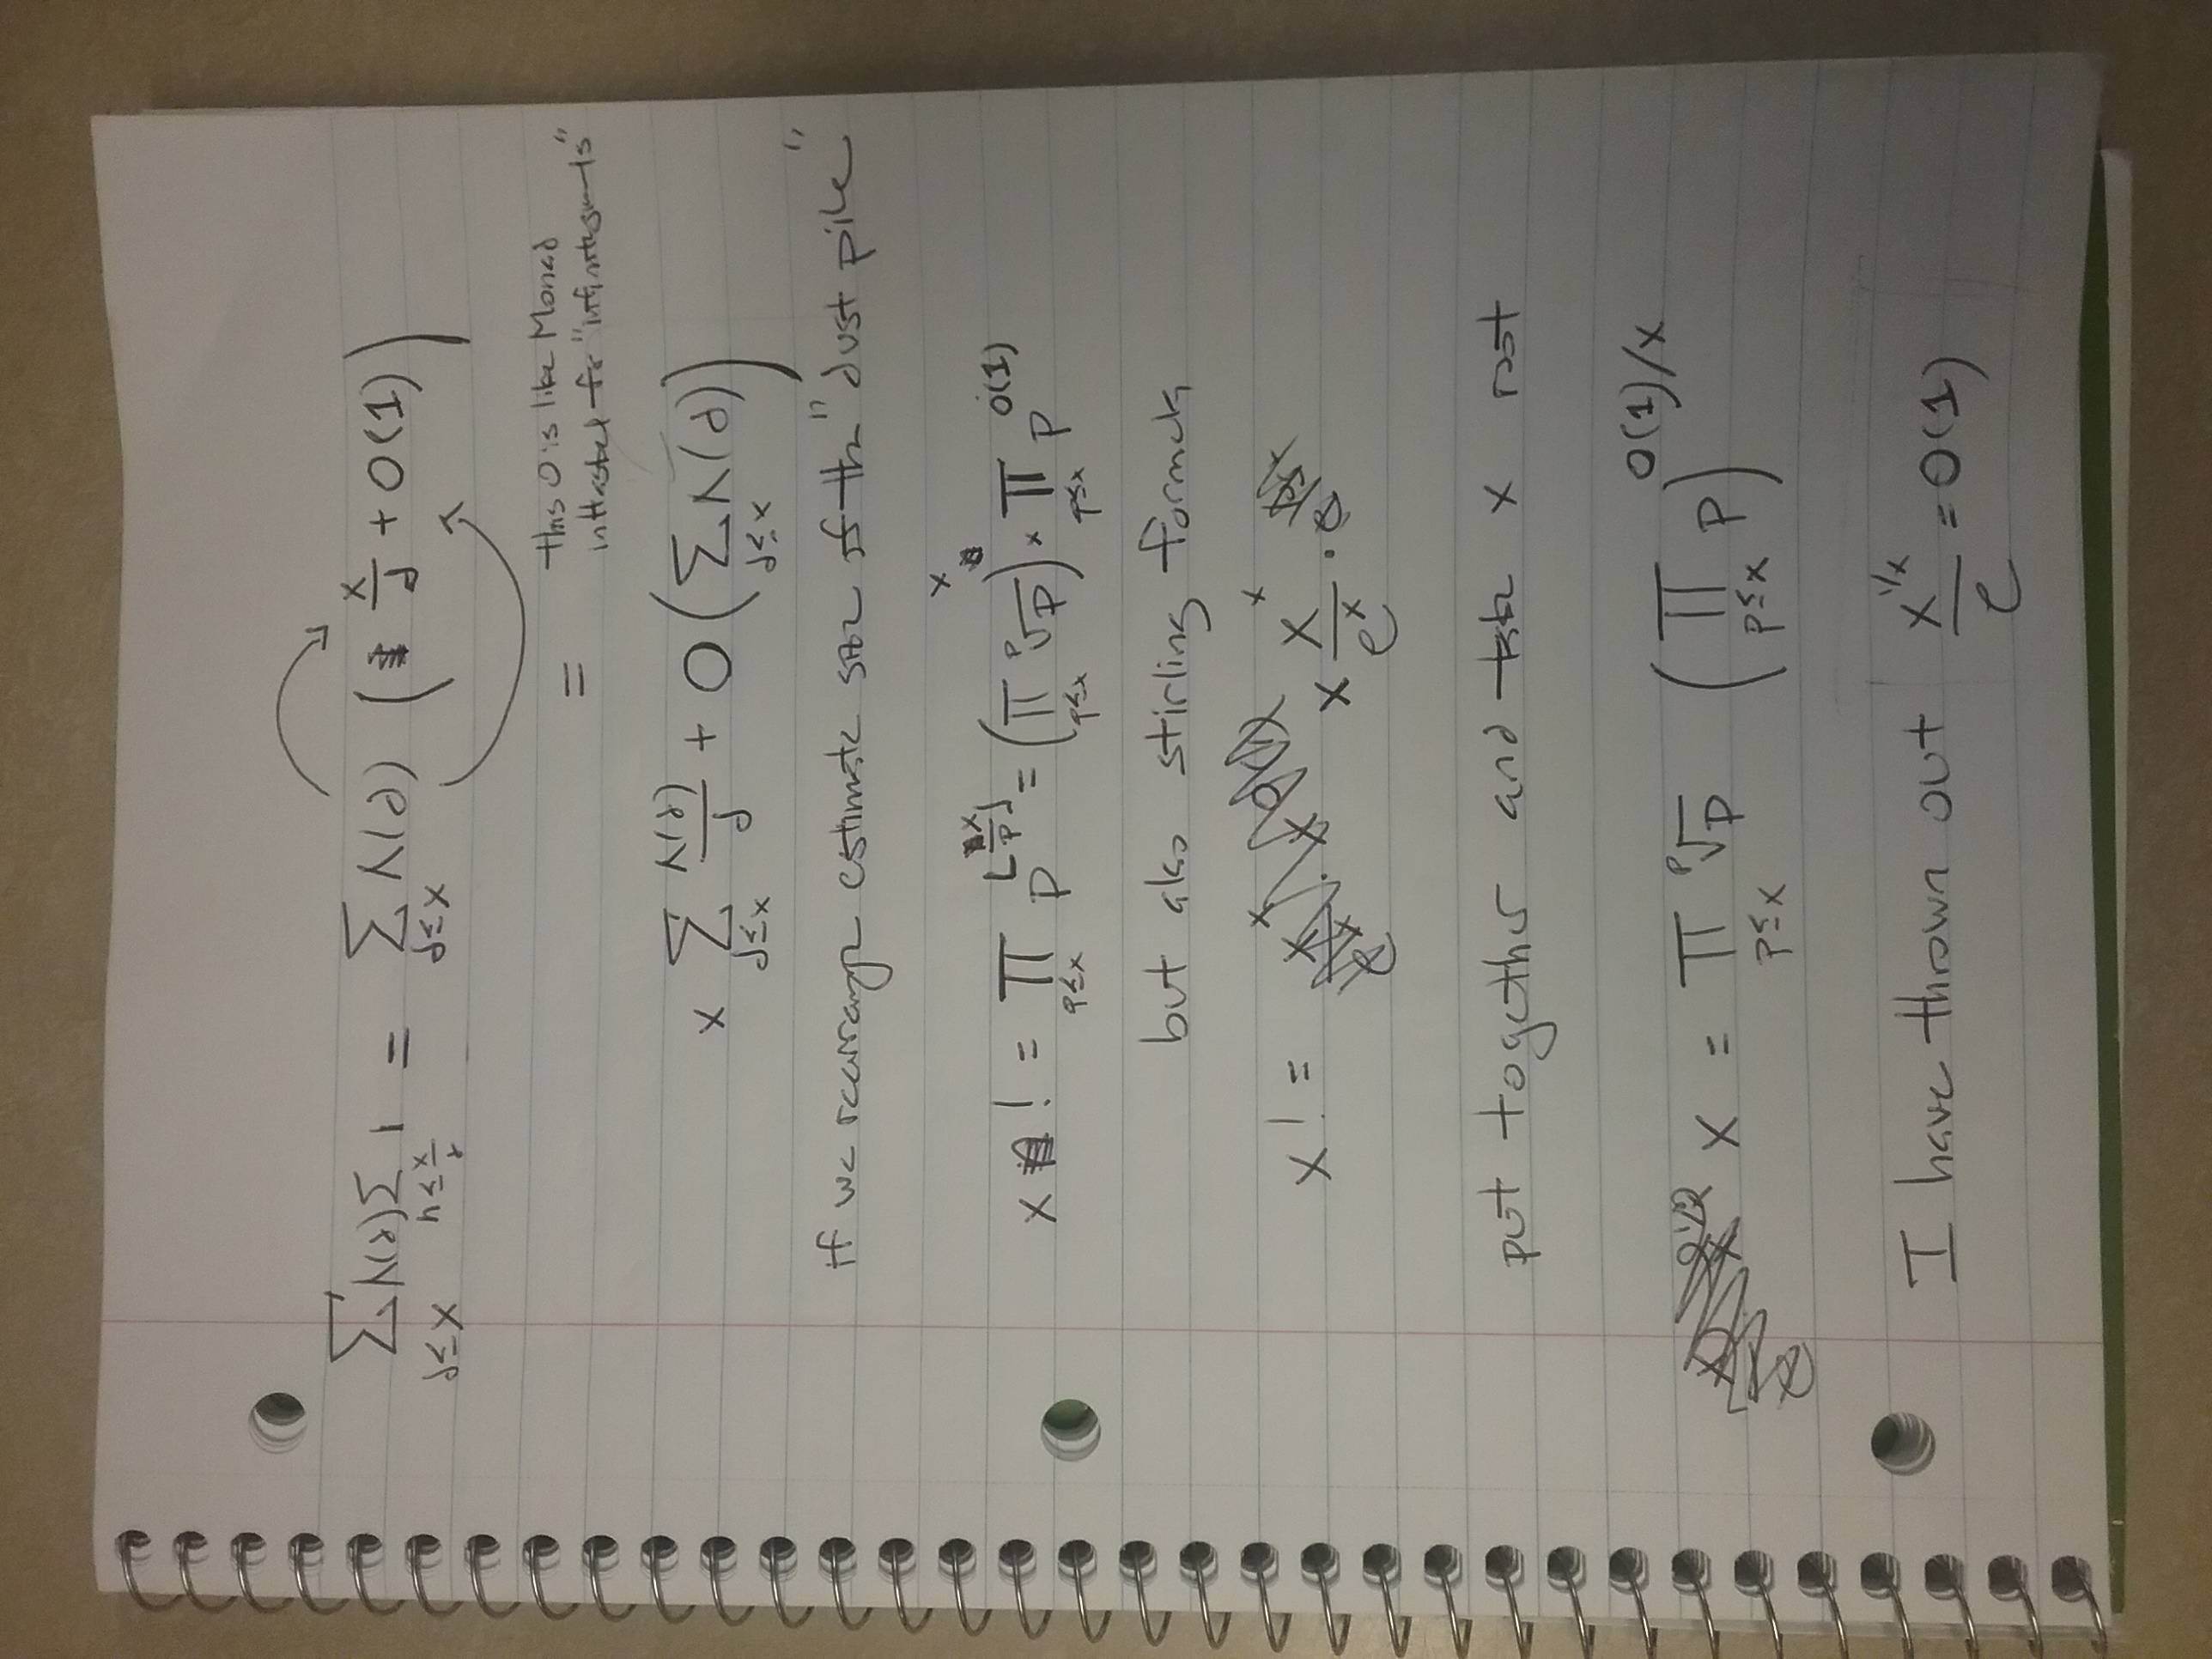 ∑_{d≤x} Λ(d) ∑_{n≤x/d} 1 = ∑_{d≤x} Λ(d) ( x/d + O(1) )
= this O is like Monad
in Haskel for "infinitesimals"
x ∑_{d≤x} Λ(d)/d + O( ∑_{d≤x} Λ(d) )
if we rearrange estimate size of the "dust pile"
x! = ∏_{p≤x} p^{⌊x/p⌋} = ( ∏_{p≤x} ᵖ√p )^x × ∏_{p≤x} p^{O(1)}
but also stirling formula
x! = x x^x/e^x ·
put together and take x root
x = ∏_{p≤x} ᵖ√p ( ∏_{p≤x} p )^{O(1)/x}
I have thrown out x^{1/x}/e = O(1)